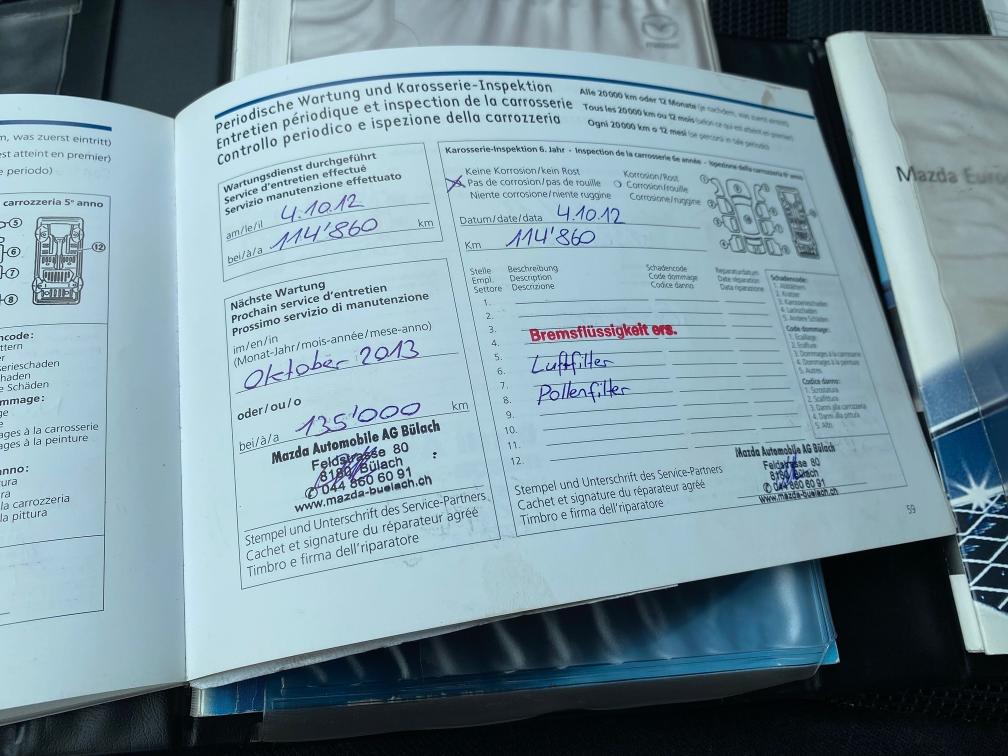 m, was zuerst eintritt)
est atteint en premier)
e periodo)
carrozzeria 5° anno
5
6
12
7
8
ncode:
ttern
er
kerieschaden
haden
e Schäden
mmage:
ge
ages à la carrosserie
ages à la peinture
anno:
tura
ra
la carrozzeria
la pittura
Periodische Wartung und Karosserie-Inspektion
Entretien périodique et inspection de la carrosserie
Controllo periodico e ispezione della carrozzeria
Alle 20 000 km oder 12 Monate (je nachdem, was zuerst eintritt)
Tous les 20 000 km ou 12 mois (selon ce qui est atteint en premier)
Ogni 20 000 km o 12 mesi (se percorsi in tale periodo)
Wartungsdienst durchgeführt
Service d'entretien effectué
Servizio manutenzione effettuato
am/le/il 4.10.12
bei/à/a 114'860 km
Nächste Wartung
Prochain service d'entretien
Prossimo servizio di manutenzione
im/en/in
(Monat-Jahr/mois-année/mese-anno)
Oktober 2013
oder/ou/o
bei/à/a 135'000 km
Mazda Automobile AG Bülach
Feldstrasse 80
8180 Bülach
✆ 044 860 60 91
www.mazda-buelach.ch
Stempel und Unterschrift des Service-Partners
Cachet et signature du réparateur agréé
Timbro e firma dell'riparatore
Karosserie-Inspektion 6. Jahr - Inspection de la carrosserie 6e année - Ispezione della carrozzeria 6° anno
Keine Korrosion/kein Rost
Pas de corrosion/pas de rouille
Niente corrosione/niente ruggine
Korrosion/Rost
Corrosion/rouille
Corrosione/ruggine
Datum/date/data 4.10.12
Km 114'860
Stelle Beschreibung Schadencode Reparaturdatum
Empl. Description Code dommage Date réparation
Settore Descrizione Codice danno Data riparazione
1.
2.
3.
Bremsflüssigkeit ers.
4.
5.
6. Luftfilter
7.
8. Pollenfilter
9.
10.
11.
12.
Schadencode:
1. Abblättern
2. Kratzer
3. Karosserieschaden
4. Lackschaden
5. Andere Schäden
Code dommage:
1. Ecaillage
2. Eraflure
3. Dommages à la carrosserie
4. Dommages à la peinture
5. Autres
Codice danno:
1. Scrostatura
2. Scalfittura
3. Danni alla carrozzeria
4. Danni alla pittura
5. Altri
Mazda Automobile AG Bülach
Feldstrasse 80
8180 Bülach
✆ 044 860 60 91
www.mazda-buelach.ch
Stempel und Unterschrift des Service-Partners
Cachet et signature du réparateur agréé
Timbro e firma dell'riparatore
59
Mazda Euro